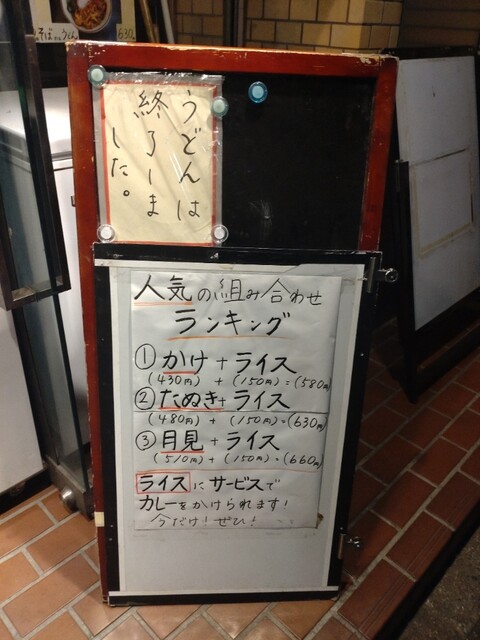 そばorうどん 630
うどんは
終了しま
した。
人気の組み合わせ
ランキング
①かけ+ライス
(430円)+(150円)=(580円)
②たぬき+ライス
(480円)+(150円)=(630円)
③月見+ライス
(510円)+(150円)=(660円)
ライスにサービスで
カレーをかけられます!
今だけ!ぜひ!